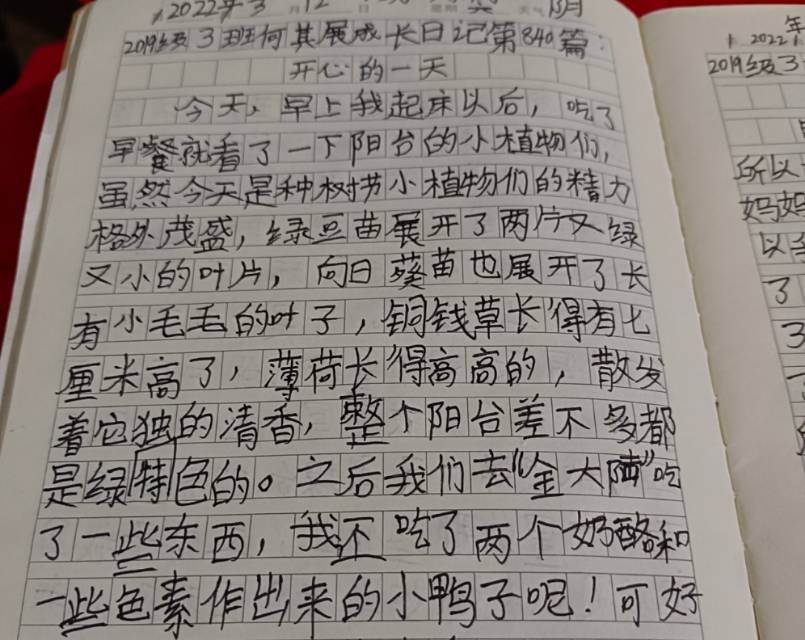 2022年3月12日 阴
2019级3班何其展成长日记第840篇:
开心的一天
今天,早上我起床以后,吃了
早餐就看了一下阳台的小植物们,
虽然今天是种树节小植物们的精力
格外茂盛,绿豆苗展开了两片又绿
又小的叶片,向日葵苗也展开了长
有小毛毛的叶子,铜钱草长得有七
厘米高了,薄荷长得高高的,散发
着它独的清香,整个阳台差不多都
是绿特色的。之后我们去“金大陆”吃
了一些东西,我还吃了两个奶酪和
一些色素作出来的小鸭子呢!可好
年
2022
2019级3
所以
妈妈
以
了
3